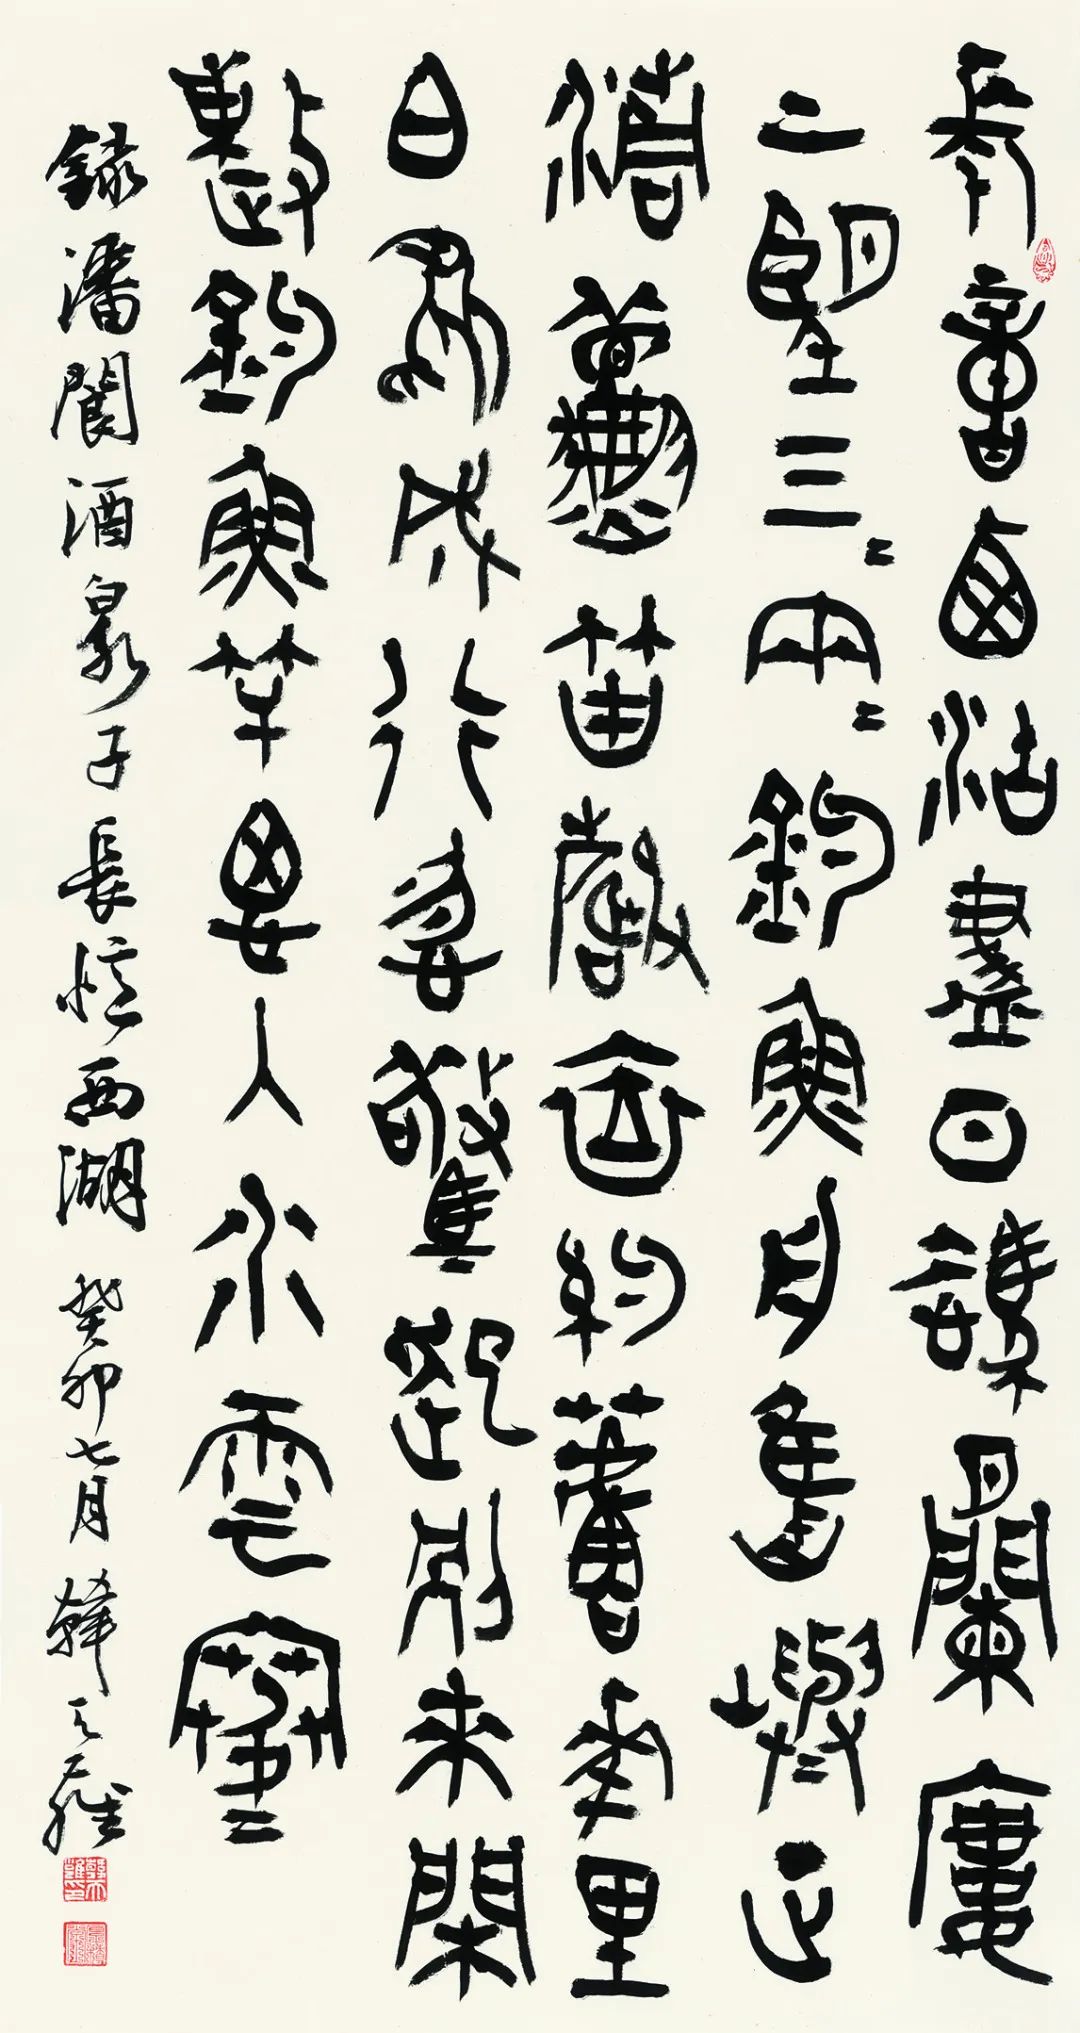 長憶西湖盡日憑闌樓
上望三〻兩〻釣魚舟島嶼正
清秋笛聲依約蘆花里
白鳥成行忽驚起別來閑
整釣魚竿思入水雲寒
錄潘閬酒泉子長憶西湖 癸卯七月 韓天雍